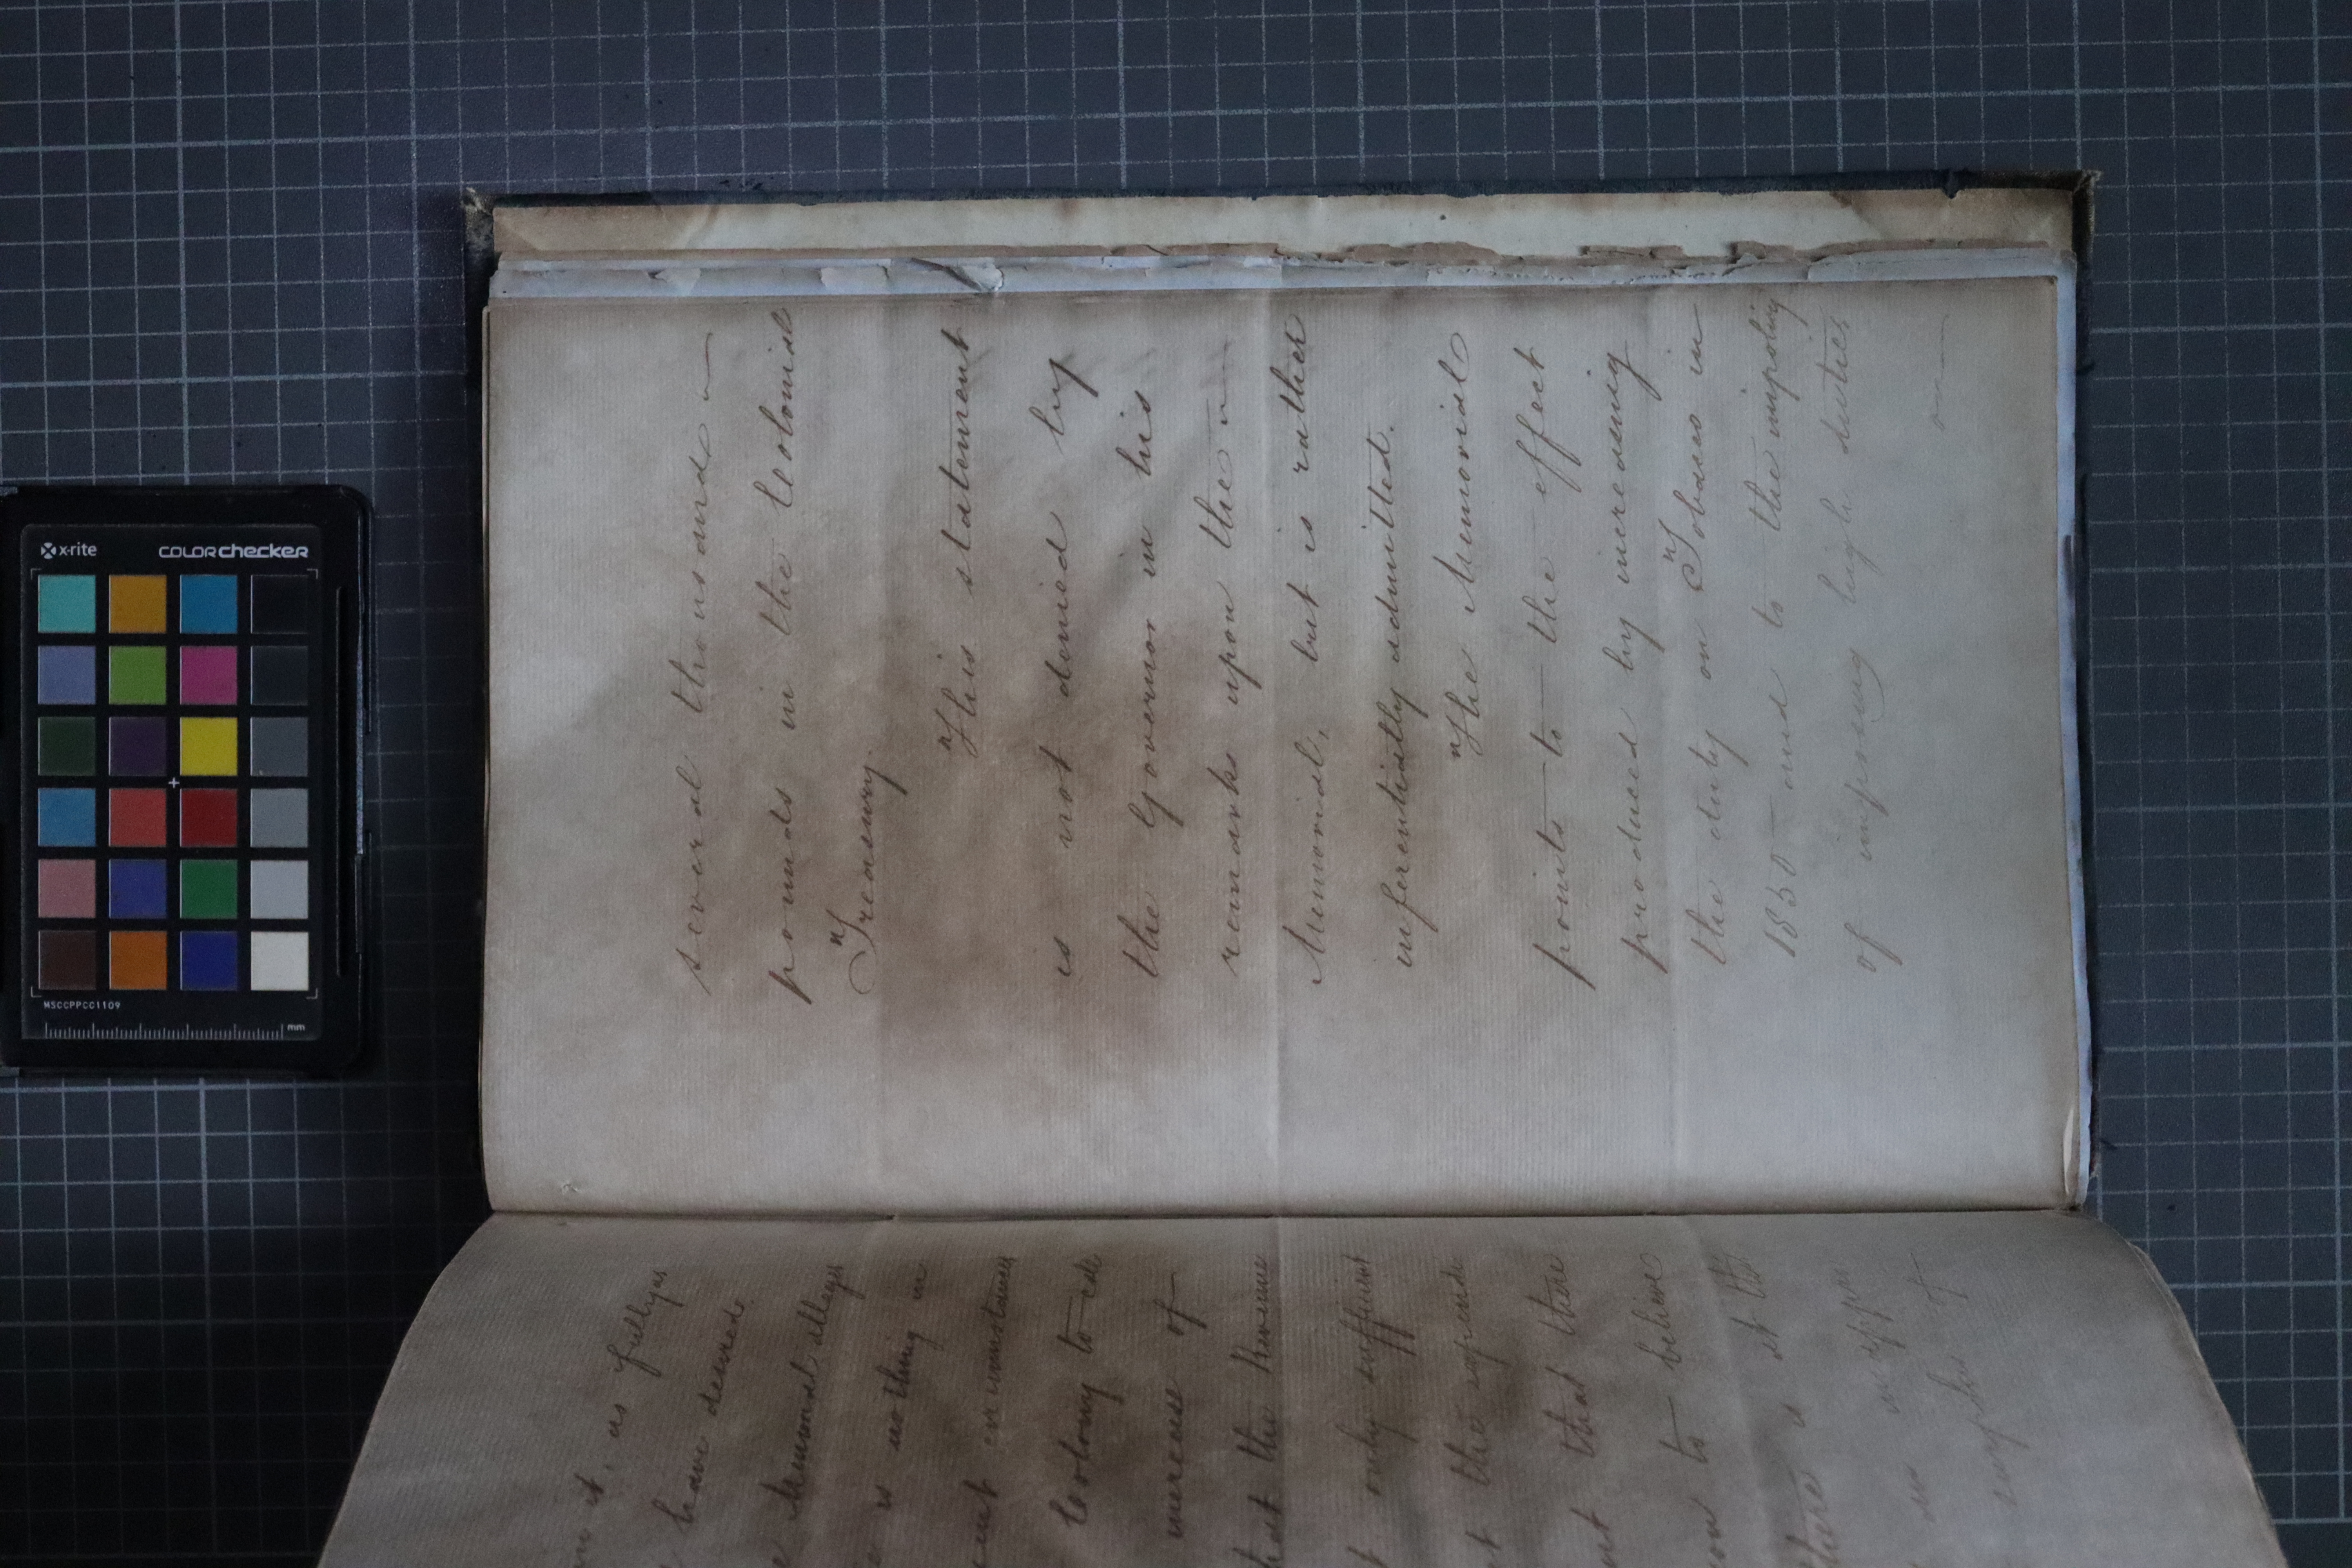 n it, as fully as
have desired.
Memorial alleges
is nothing in
circumstances
Colony to
increase of
that the Revenue
only sufficient
the
that there
to believe
there is at the
an
surplus of
several thousand
pounds in the Colonial
Treasury.
This statement
is not denied by
the Governor in his
remarks upon the
Memorial, but is rather
inferentially admitted.
The Memorial
points to the effect
produced by increasing
the duty on Tobacco in
1850 and to the impolicy
of imposing high duties
on
x-rite colorchecker
MSCCPPCC1109
mm